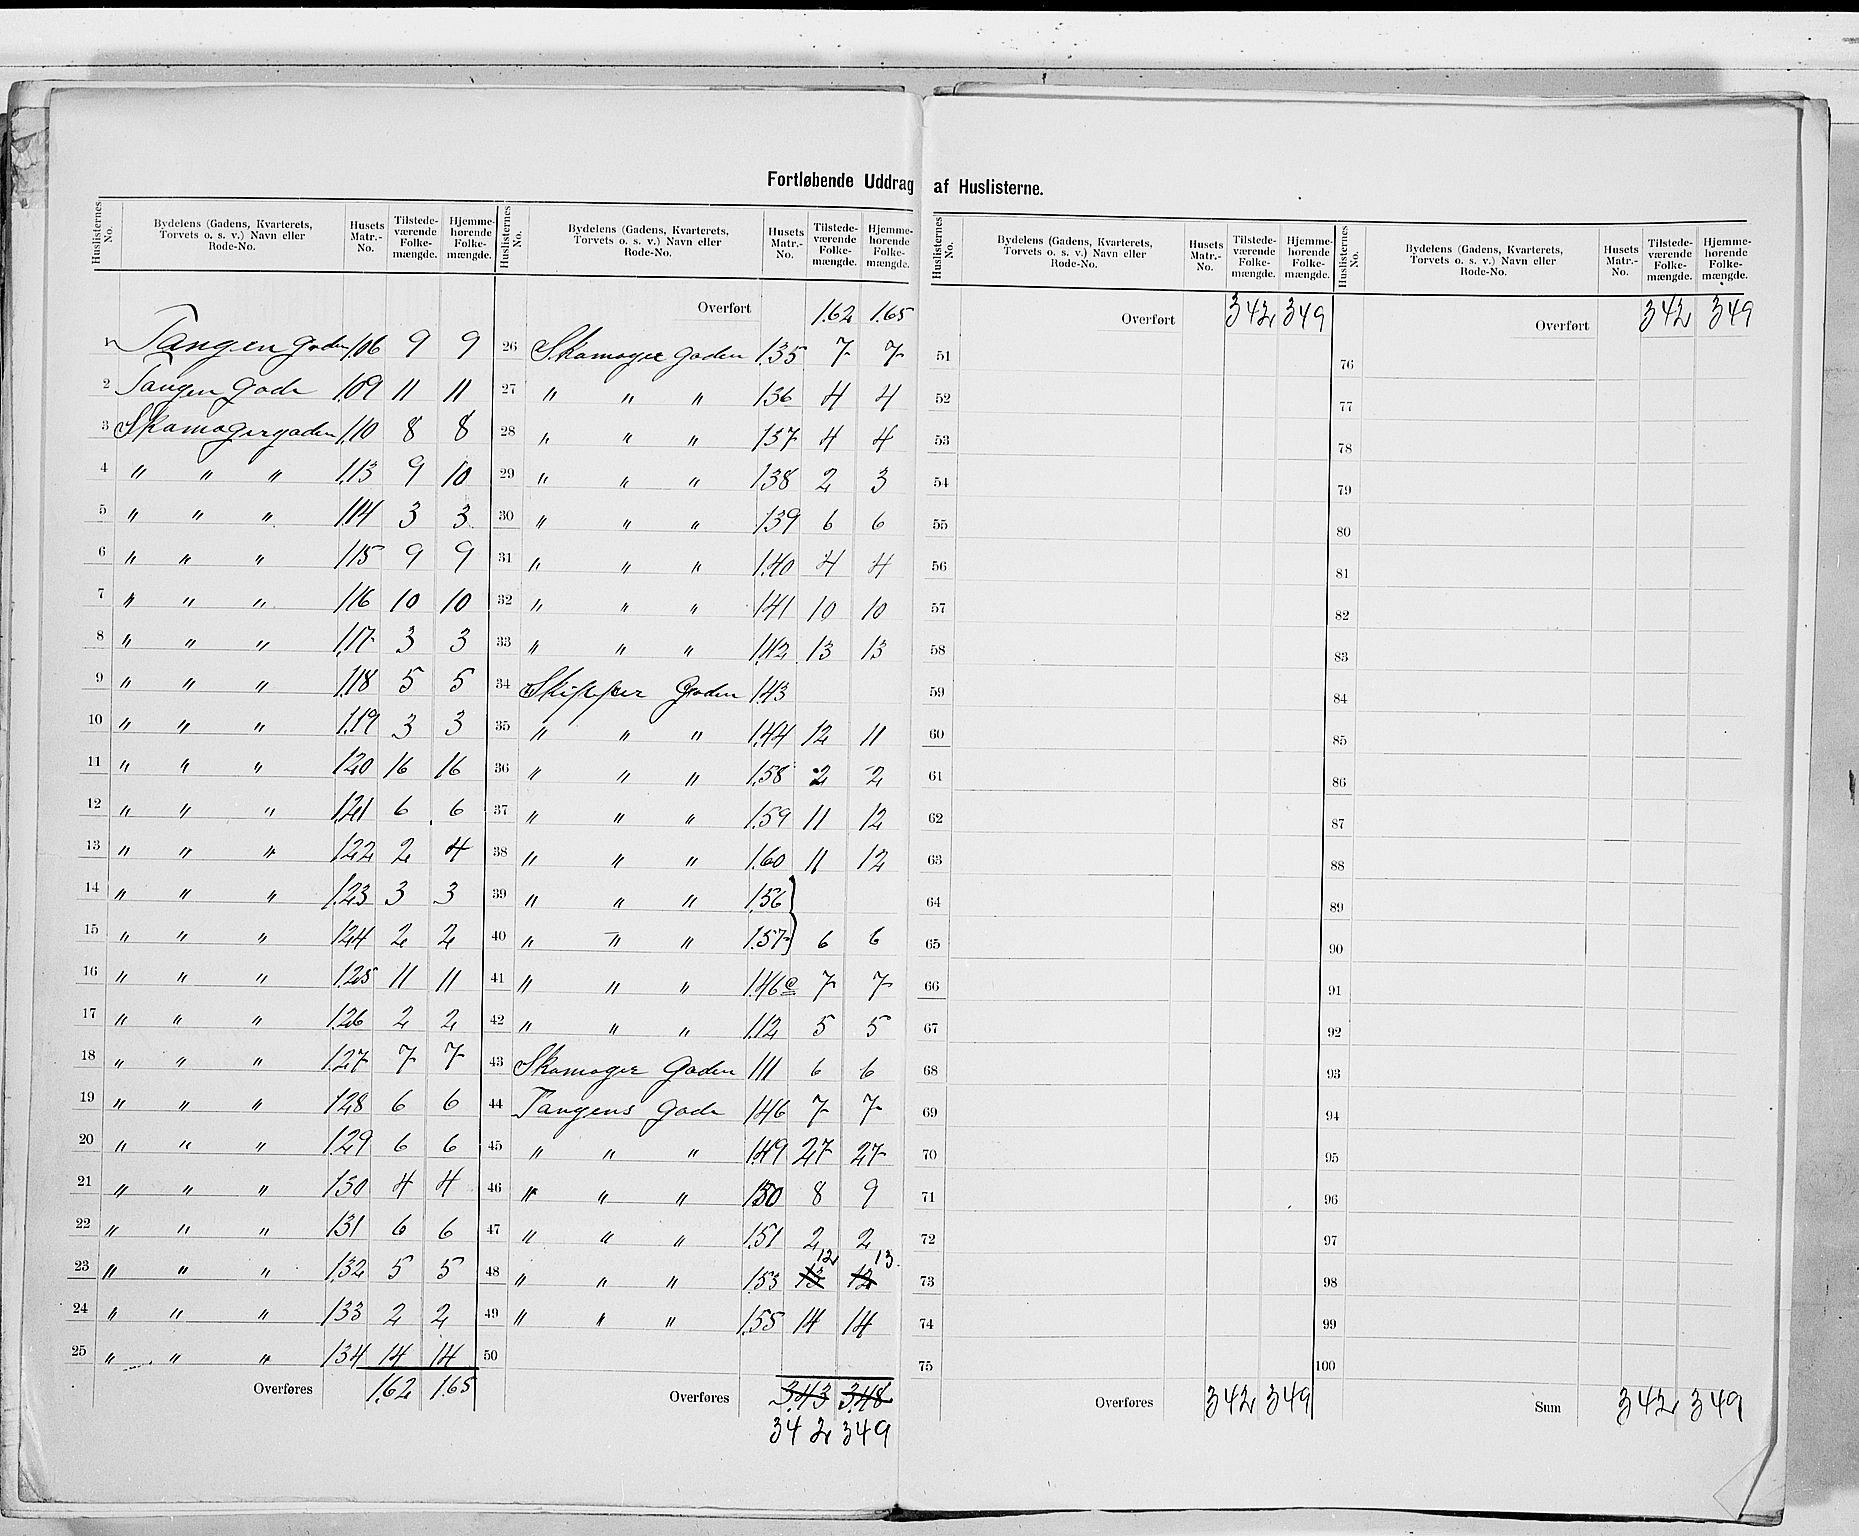 Fortløbende Uddrag af Huslisterne.
Huslisternes No. | Bydelens (Gadens, Kvarterets, Torvets o. s. v.) Navn eller Rode-No. | Husets Matr.-No. | Tilstedeværende Folkemængde. | Hjemmehørende Folkemængde.
1 Tangen Gaden 106 9 9
2 Tangen Gade 109 11 11
3 Skomagergaden 110 8 8
4 " " " 113 9 10
5 " " " 114 3 3
6 " " " 115 9 9
7 " " " 116 10 10
8 " " " 117 3 3
9 " " " 118 5 5
10 " " " 119 3 3
11 " " " 120 16 16
12 " " " 121 6 6
13 " " " 122 2 4
14 " " " 123 3 3
15 " " " 124 2 2
16 " " " 125 11 11
17 " " " 126 2 2
18 " " " 127 7 7
19 " " " 128 6 6
20 " " " 129 6 6
21 " " " 130 4 4
22 " " " 131 6 6
23 " " " 132 5 5
24 " " " 133 2 2
25 " " " 134 14 14
Overføres 162 165
Huslisternes No. | Bydelens (Gadens, Kvarterets, Torvets o. s. v.) Navn eller Rode-No. | Husets Matr.-No. | Tilstedeværende Folkemængde. | Hjemmehørende Folkemængde.
Overført 162 165
26 Skomager Gaden 135 7 7
27 " " " 136 4 4
28 " " " 137 4 4
29 " " " 138 2 3
30 " " " 139 6 6
31 " " " 140 4 4
32 " " " 141 10 10
33 " " " 142 13 13
34 Skipper Gaden 143
35 " " " 144 12 11
36 " " " 158 2 2
37 " " " 159 11 12
38 " " " 160 11 12
39 " " " 156 }
40 " " " 157 } 6 6
41 " " " 146 c 7 7
42 " " " 112 5 5
43 Skomager Gaden 111 6 6
44 Tangens Gade 146 7 7
45 " " " 149 27 27
46 " " " 150 8 9
47 " " " 151 2 2
12 13
48 " " " 153 13 12
49 " " " 155 14 14
50
Overføres 343 348
342 349
Huslisternes No. | Bydelens (Gadens, Kvarterets, Torvets o. s. v.) Navn eller Rode-No. | Husets Matr.-No. | Tilstedeværende Folkemængde. | Hjemmehørende Folkemængde.
Overført 342 349
51
52
53
54
55
56
57
58
59
60
61
62
63
64
65
66
67
68
69
70
71
72
73
74
75
Overføres 342 349
Huslisternes No. | Bydelens (Gadens, Kvarterets, Torvets o. s. v.) Navn eller Rode-No. | Husets Matr.-No. | Tilstedeværende Folkemængde. | Hjemmehørende Folkemængde.
Overført 342 349
76
77
78
79
80
81
82
83
84
85
86
87
88
89
90
91
92
93
94
95
96
97
98
99
100
Sum 342 349